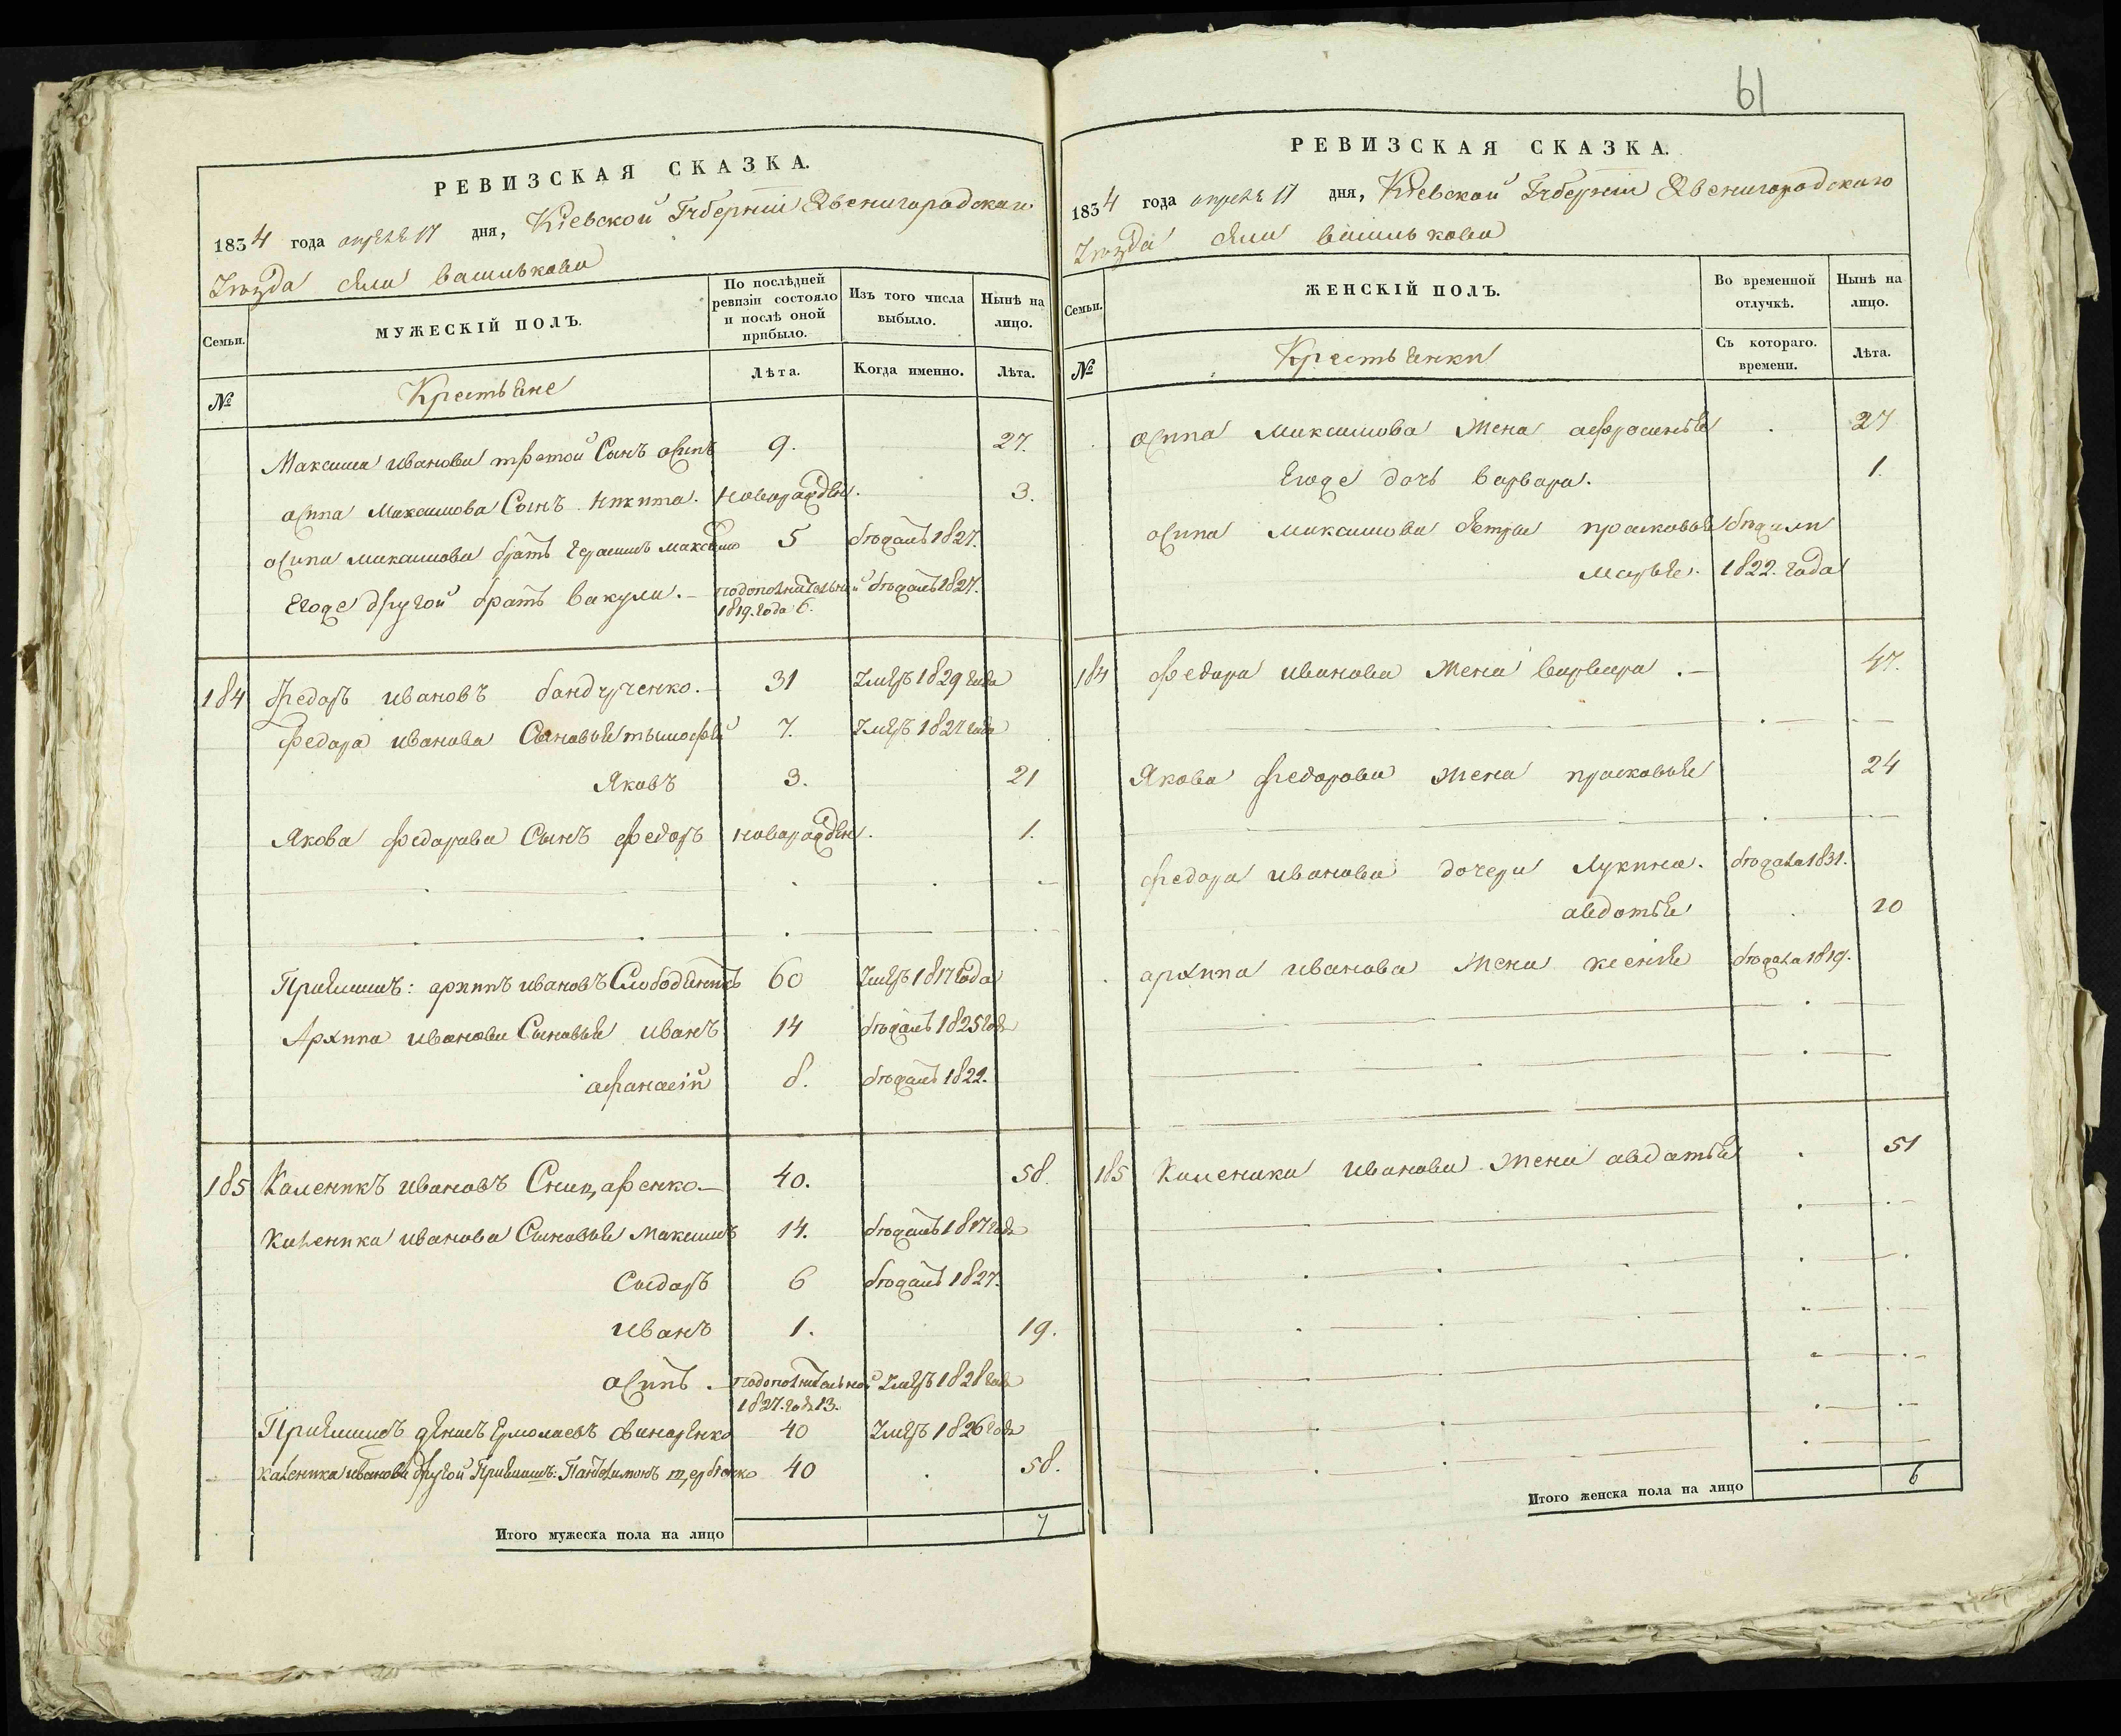 РЕВИЗСКАЯ СКАЗКА.
1834 года апреля 17 дня, Кіевской Губерніи Звенигородскаго
Уезда села василькова
Семьи. МУЖЕСКІЙ ПОЛЪ. По послѣдней ревизіи состояло и послѣ оной прибыло. Изъ того числа выбыло. Нынѣ на лицо.
№ Крестьяне Лѣта. Когда именно. Лѣта.
Максима иванова третой Сынъ осипъ 9. 27.
осипа Максимова Сынъ никита. новорожден. 3.
осипа максимова братъ герасимъ 5 бежалъ 1827.
Егоже другой братъ вакула. подополнителъной бежалъ 1827.
1819. года 6.
184 Федоръ ивановъ бандурченко. 31 Умеръ 1829 года
Федора иванова Сыновья тымофей 7. Умеръ 1827 года
Яковъ 3. 21
Якова федорова Сынъ федоръ новорожден. 1.
Приемишъ: архипъ ивановъ 60 Умеръ 1817 года
Архипа иванова Сыновья иванъ 14 бежалъ 1825 года
афанасій 8. бежалъ 1822.
185 Каленикъ ивановъ Сницаренко 40. 58.
каленика иванова Сыновья максимъ 14. бежалъ 1817 года
Сыдоръ 6 бежалъ 1827.
иванъ 1. 19.
осипъ. подополнителъной Умеръ 1828 года
1827. года 13.
Приемишъ Ермолаевъ свинаренко 40 Умеръ 1826 года
каленика иванова другой Приемишъ: Пантелимонъ щербенко 40 58.
Итого мужеска пола на лицо 7
61
РЕВИЗСКАЯ СКАЗКА.
1834 года апреля 17 дня, Кіевской Губерніи Звенигородскаго
Уезда села василькова
Семьи. ЖЕНСКІЙ ПОЛЪ. Во временной отлучкѣ. Нынѣ на лицо.
№ Крестьянки Съ котораго. времени. Лѣта.
осипа максимова жена афросинья 27
Егоже дочь варвара. 1.
осипа максимова сестры прасковья бежали
марья. 1822. года
184 федора иванова жена варвара. 47.
Якова федорова жена прасковья 24
федора иванова дочери Лукина. бежала 1831.
авдотья 20
архипа иванова жена ксенія бежала 1819.
185 Каленика иванова жена авдотья 51
Итого женска пола на лицо 6